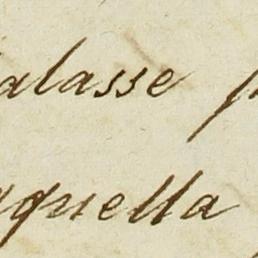 alasse p
quella